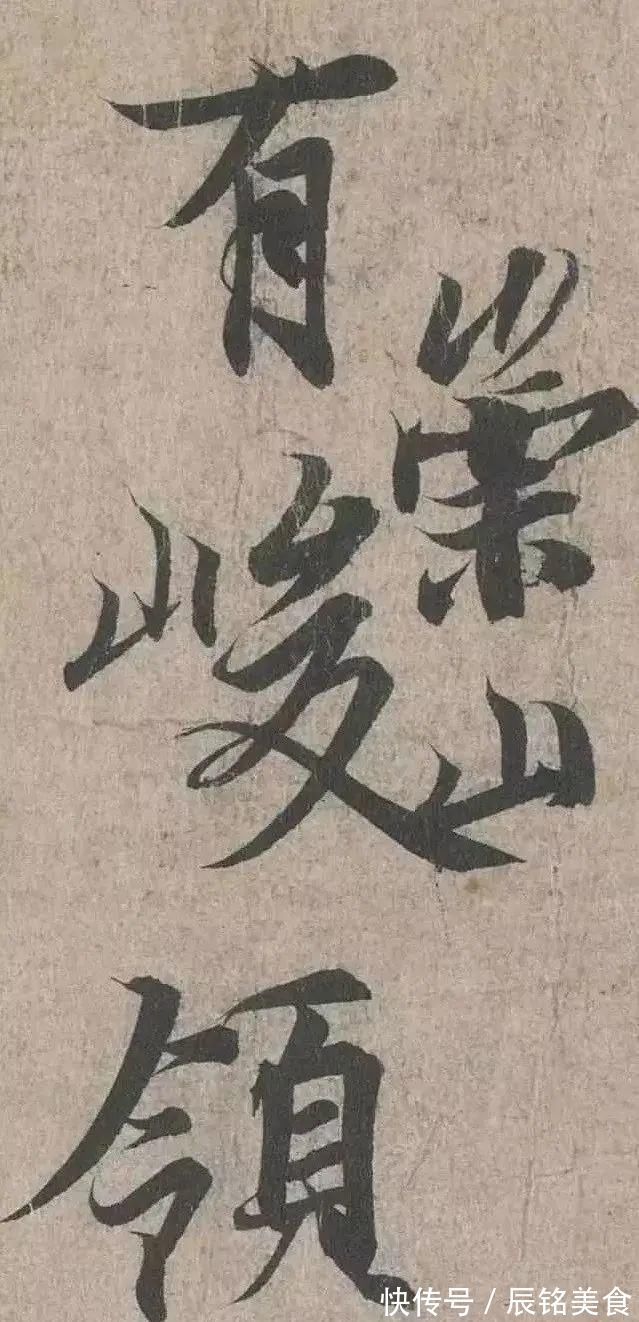 有崇山峻領
快传号 / 辰铭美食